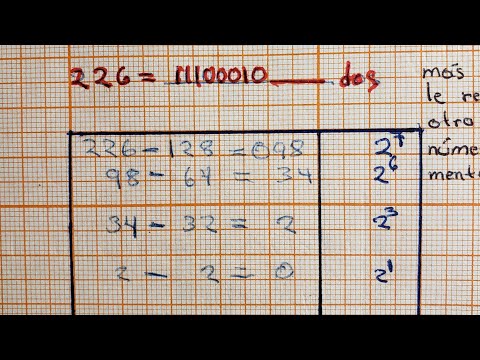 226 = 11100010 dos
226 - 128 = 098 2⁷
98 - 64 = 34 2⁶
34 - 32 = 2 2³
2 - 2 = 0 2¹
más
le re
otro
núme
ment